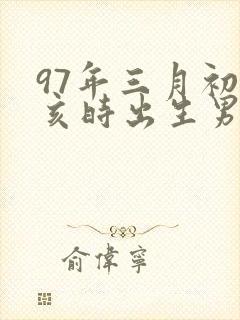 97年三月初
亥時出生男
俞偉寧